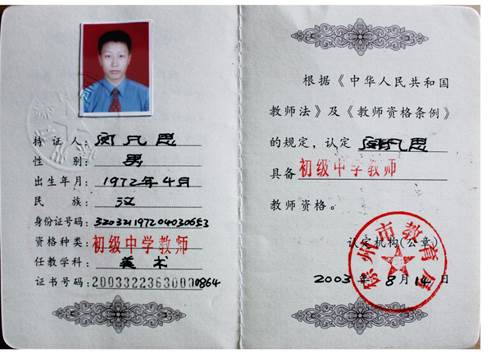 持证人：闵凡思
性别：男
出生年月：1972年4月
民族：汉
资格种类：初级中学教师
任教学科：美术
证书号码：20033223630000864
根据《中华人民共和国
教师法》及《教师资格条例》
的规定，认定 闵凡思
具备 初级中学教师
教师资格。
认定机构(公章)
徐州市教育局
2003年8月14日